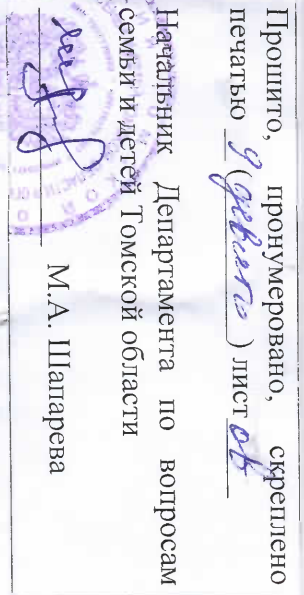 Прошито, пронумеровано, скреплено
печатью 9 (девять) листов
Начальник Департамента по вопросам
семьи и детей Томской области
М.А. Шапарева